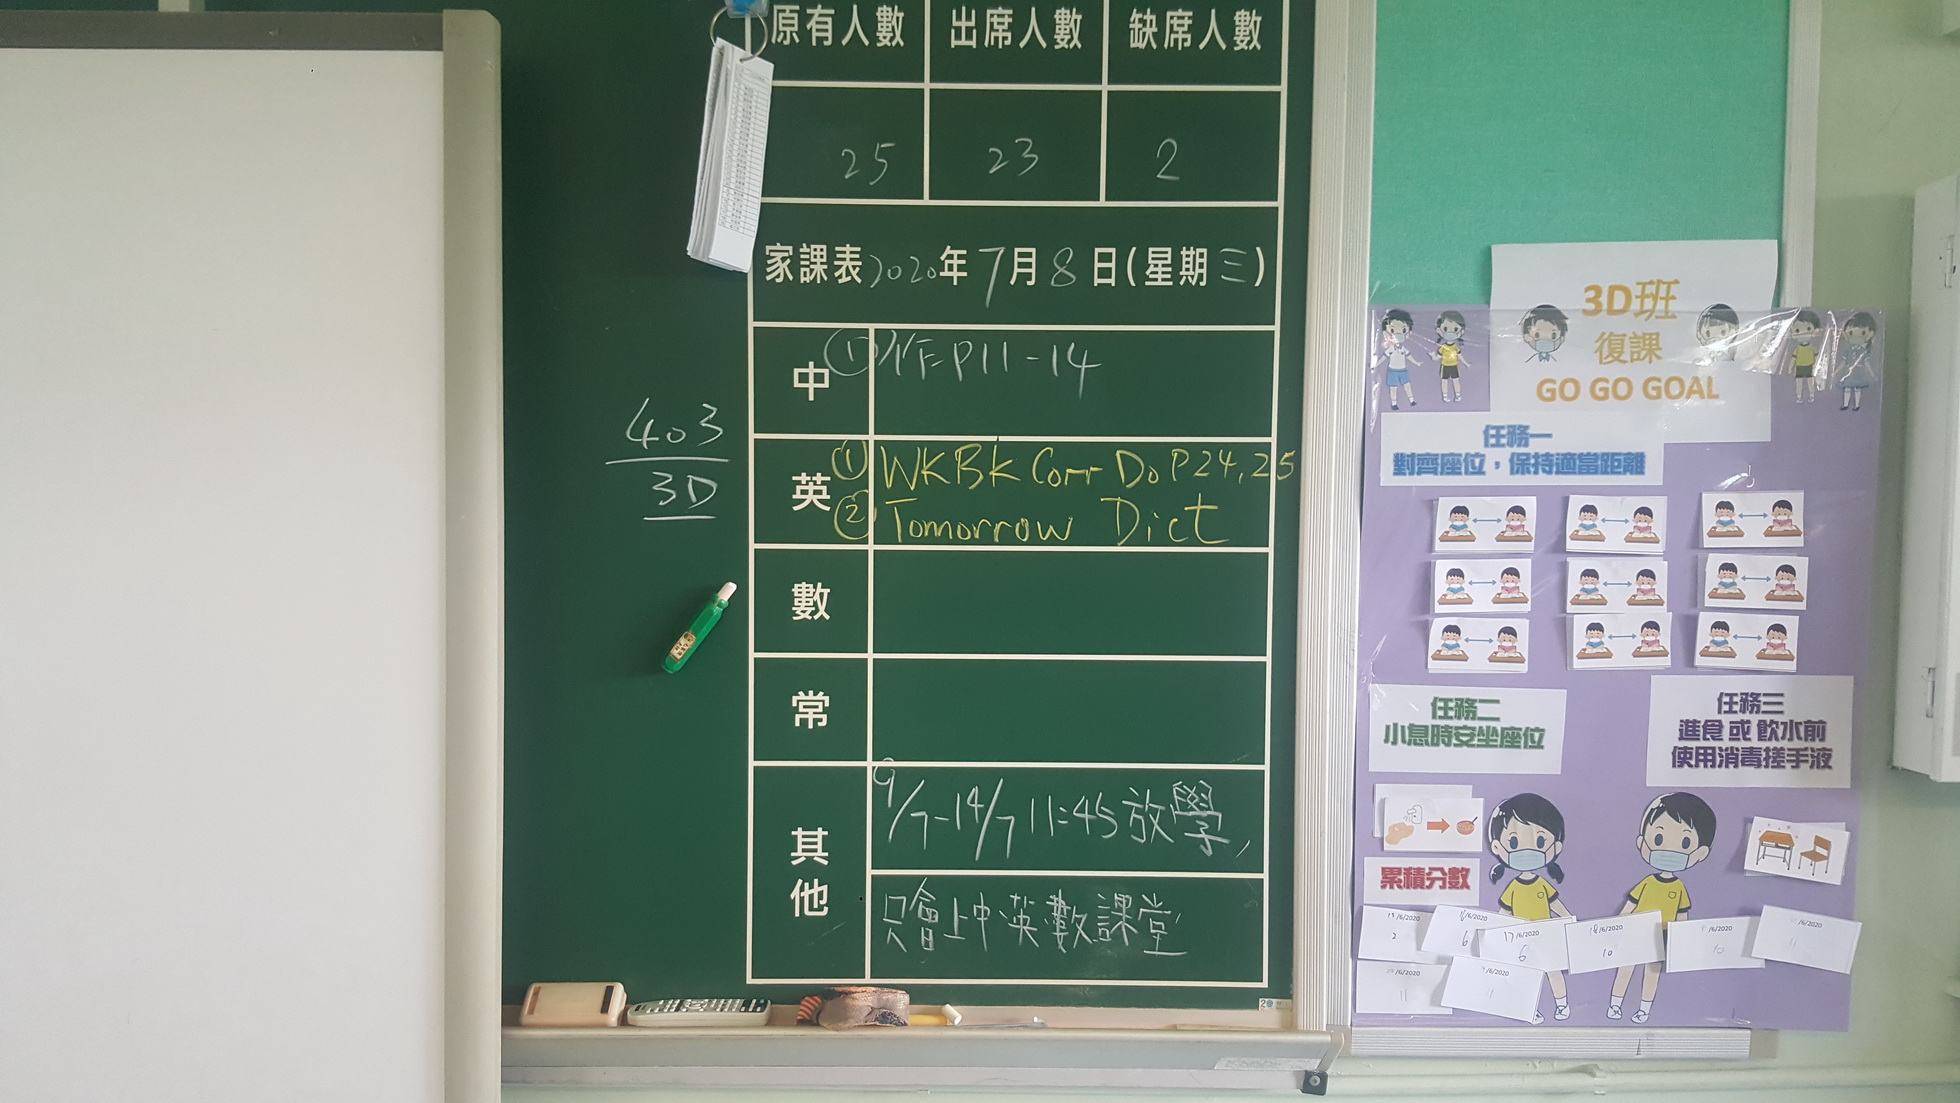 原有人數 出席人數 缺席人數
25 23 2
家課表2020年7月8日(星期三)
中 ①作P11-14
英 ①WKBk Corr Do P24,25
②Tomorrow Dict
數
常
其他
9/7-14/7 11:45放學,
只會上中英數課堂
403
3D
3D班
復課
GO GO GOAL
任務一
對齊座位，保持適當距離
任務二
小息時安坐座位
任務三
進食 或 飲水前
使用消毒搓手液
累積分數
/6/2020
2
/6/2020
6
17/6/2020
6
18/6/2020
10
/6/2020
10
/6/2020
11
/6/2020
11
/6/2020